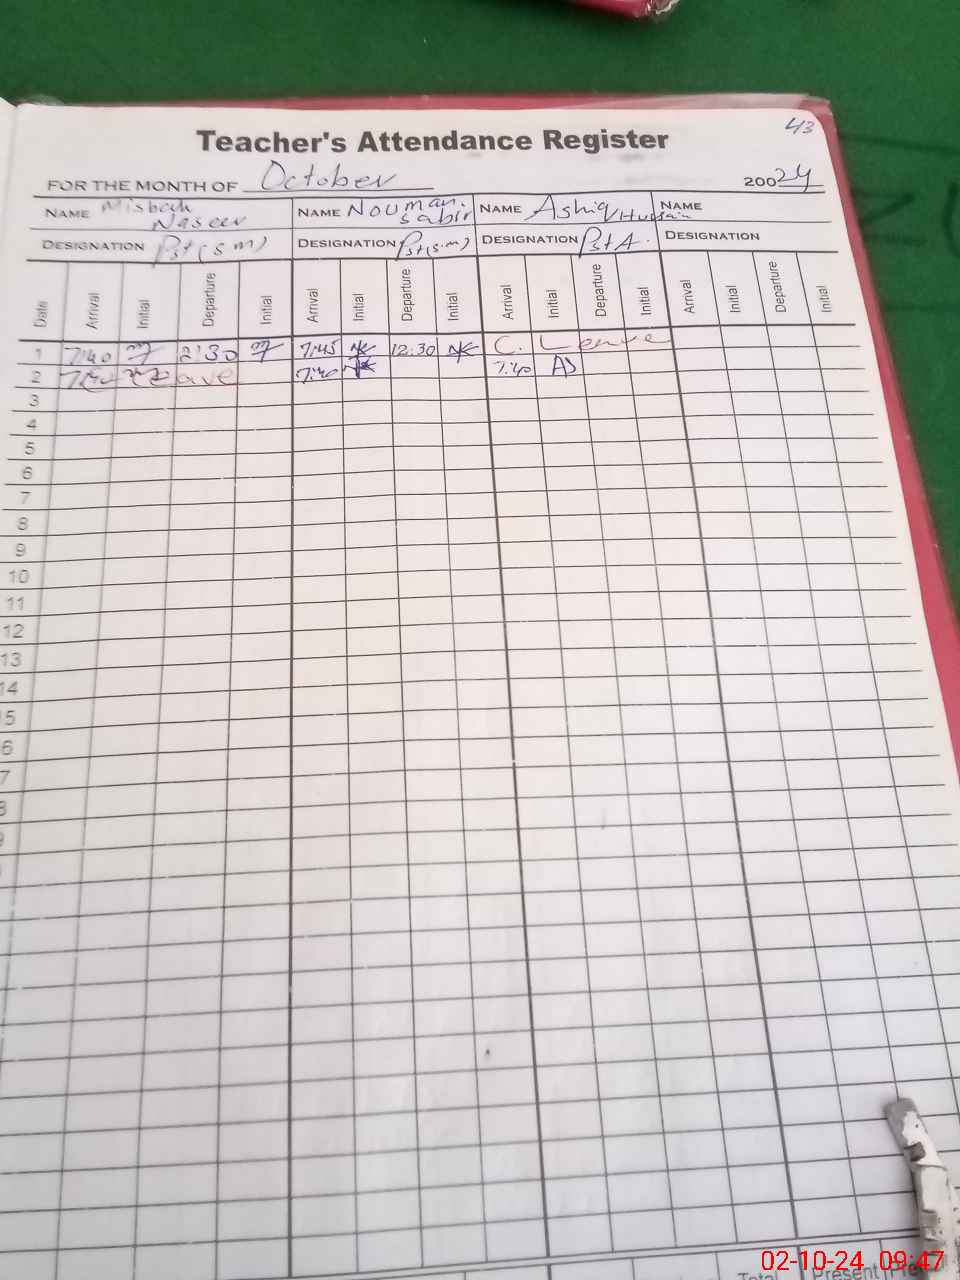 43
Teacher's Attendance Register
FOR THE MONTH OF October 20024
NAME Misbah Naseer NAME Nouman Sabir NAME Ashiq Hussain NAME
DESIGNATION Pst (s m) DESIGNATION Pst (s.m) DESIGNATION Pst A. DESIGNATION
Date Arrival Initial Departure Initial Arrival Initial Departure Initial Arrival Initial Departure Initial Arrival Initial Departure Initial
1 7:40 2:30 7:45 12:30 C. Leave
2 7:40 7:40
3
4
5
6
7
8
9
10
11
12
13
14
5
6
7
8
Total Present
02-10-24 09:47